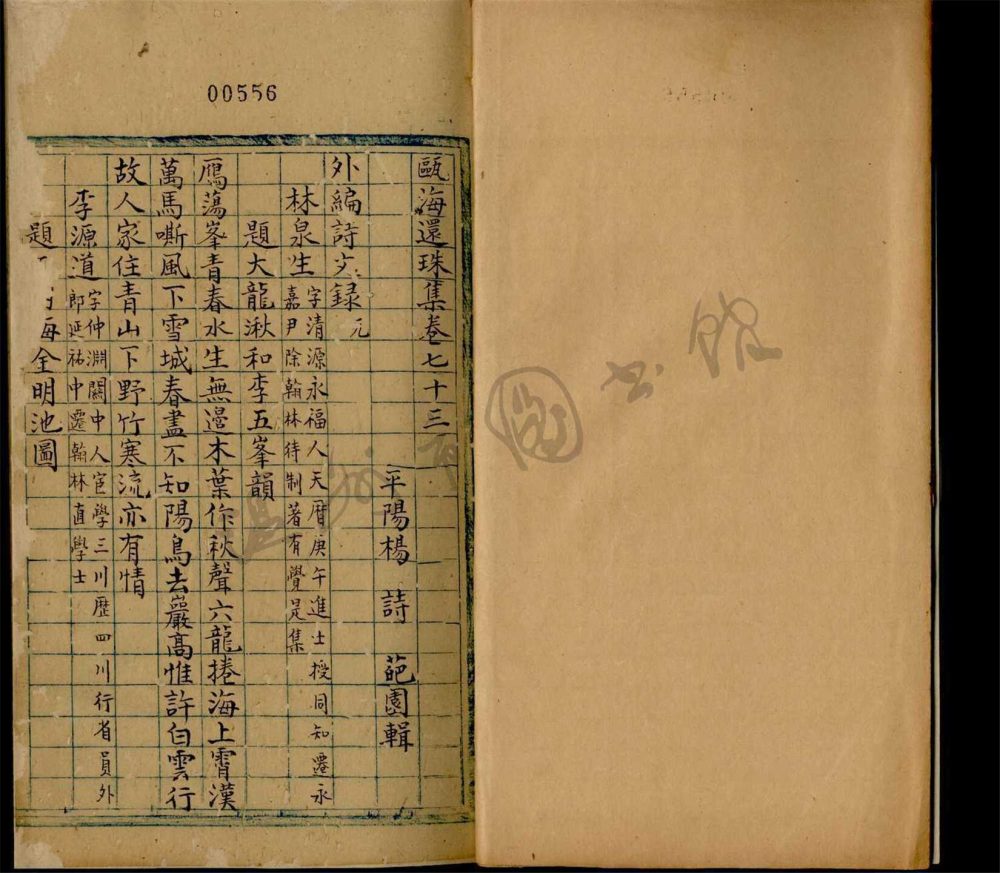 00556
甌海還珠集卷七十三
平陽楊 詩 葩園輯
外編詩文錄 元
林泉生 字清源永福人天曆庚午進士授同知遷永
嘉尹除翰林待制著有覺是集
題大龍湫和李五峯韻
鴈蕩峯青春水生無邉木葉作秋聲六龍捲海上霄漢
萬馬嘶風下雪城春盡不知陽鳥去巖高惟許白雲行
故人家住青山下野竹寒流亦有情
李源道 字仲淵關中人宦學三川歷四川行省員外
郎延祐中遷翰林直學士
題 海全明池圖
圖書館